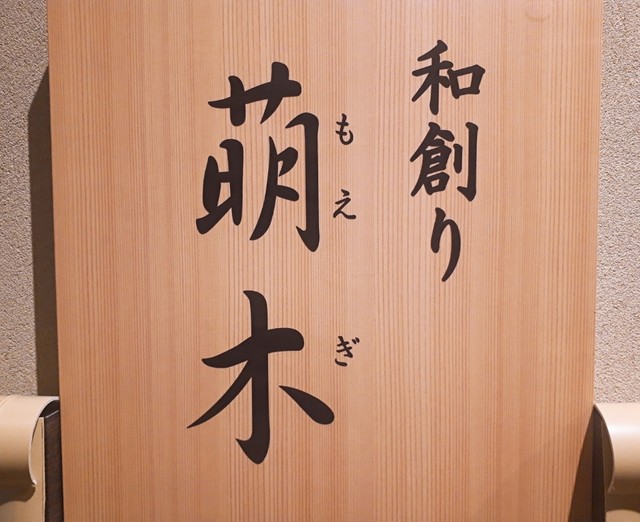 和創り
萌木
もえぎ